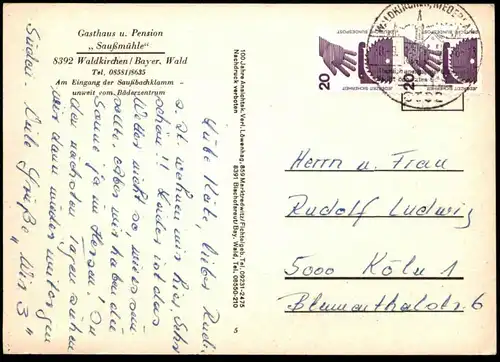 Gasthaus u. Pension
„Saußmühle"
8392 Waldkirchen/Bayer. Wald
Tel. 08581/8635
Am Eingang der Saußbachklamm -
unweit vom Bäderzentrum
Liebe Käte, lieber Rudi
s. St. wohnen wir hier, sehr
schön!! Leider ist das
Wetter nicht so wie es sein
sollte, aber wir haben die
Sonne ja im Herzen! In
den nächsten Tagen ziehen
wir dann wieder weiter gen
Süden. Viele Grüße
„Wir 3"
100 Jahre Ansichtsk.Verl. Löwenhag, 859 Marktredwitz/Fichtelgeb. Tel. 09231-2475
Nachdruck verboten 8391 Bischofsreut/Bay. Wald, Tel. 08550-210
5
DEUTSCHE BUNDESPOST
JEDERZEIT SICHERHEIT
20
DEUTSCHE BUNDESPOST
JEDERZEIT SICHERHEIT
20
8392
Herrn u. Frau
Rudolf Ludwig
5000 Köln 1
Blumenthalstr. 6